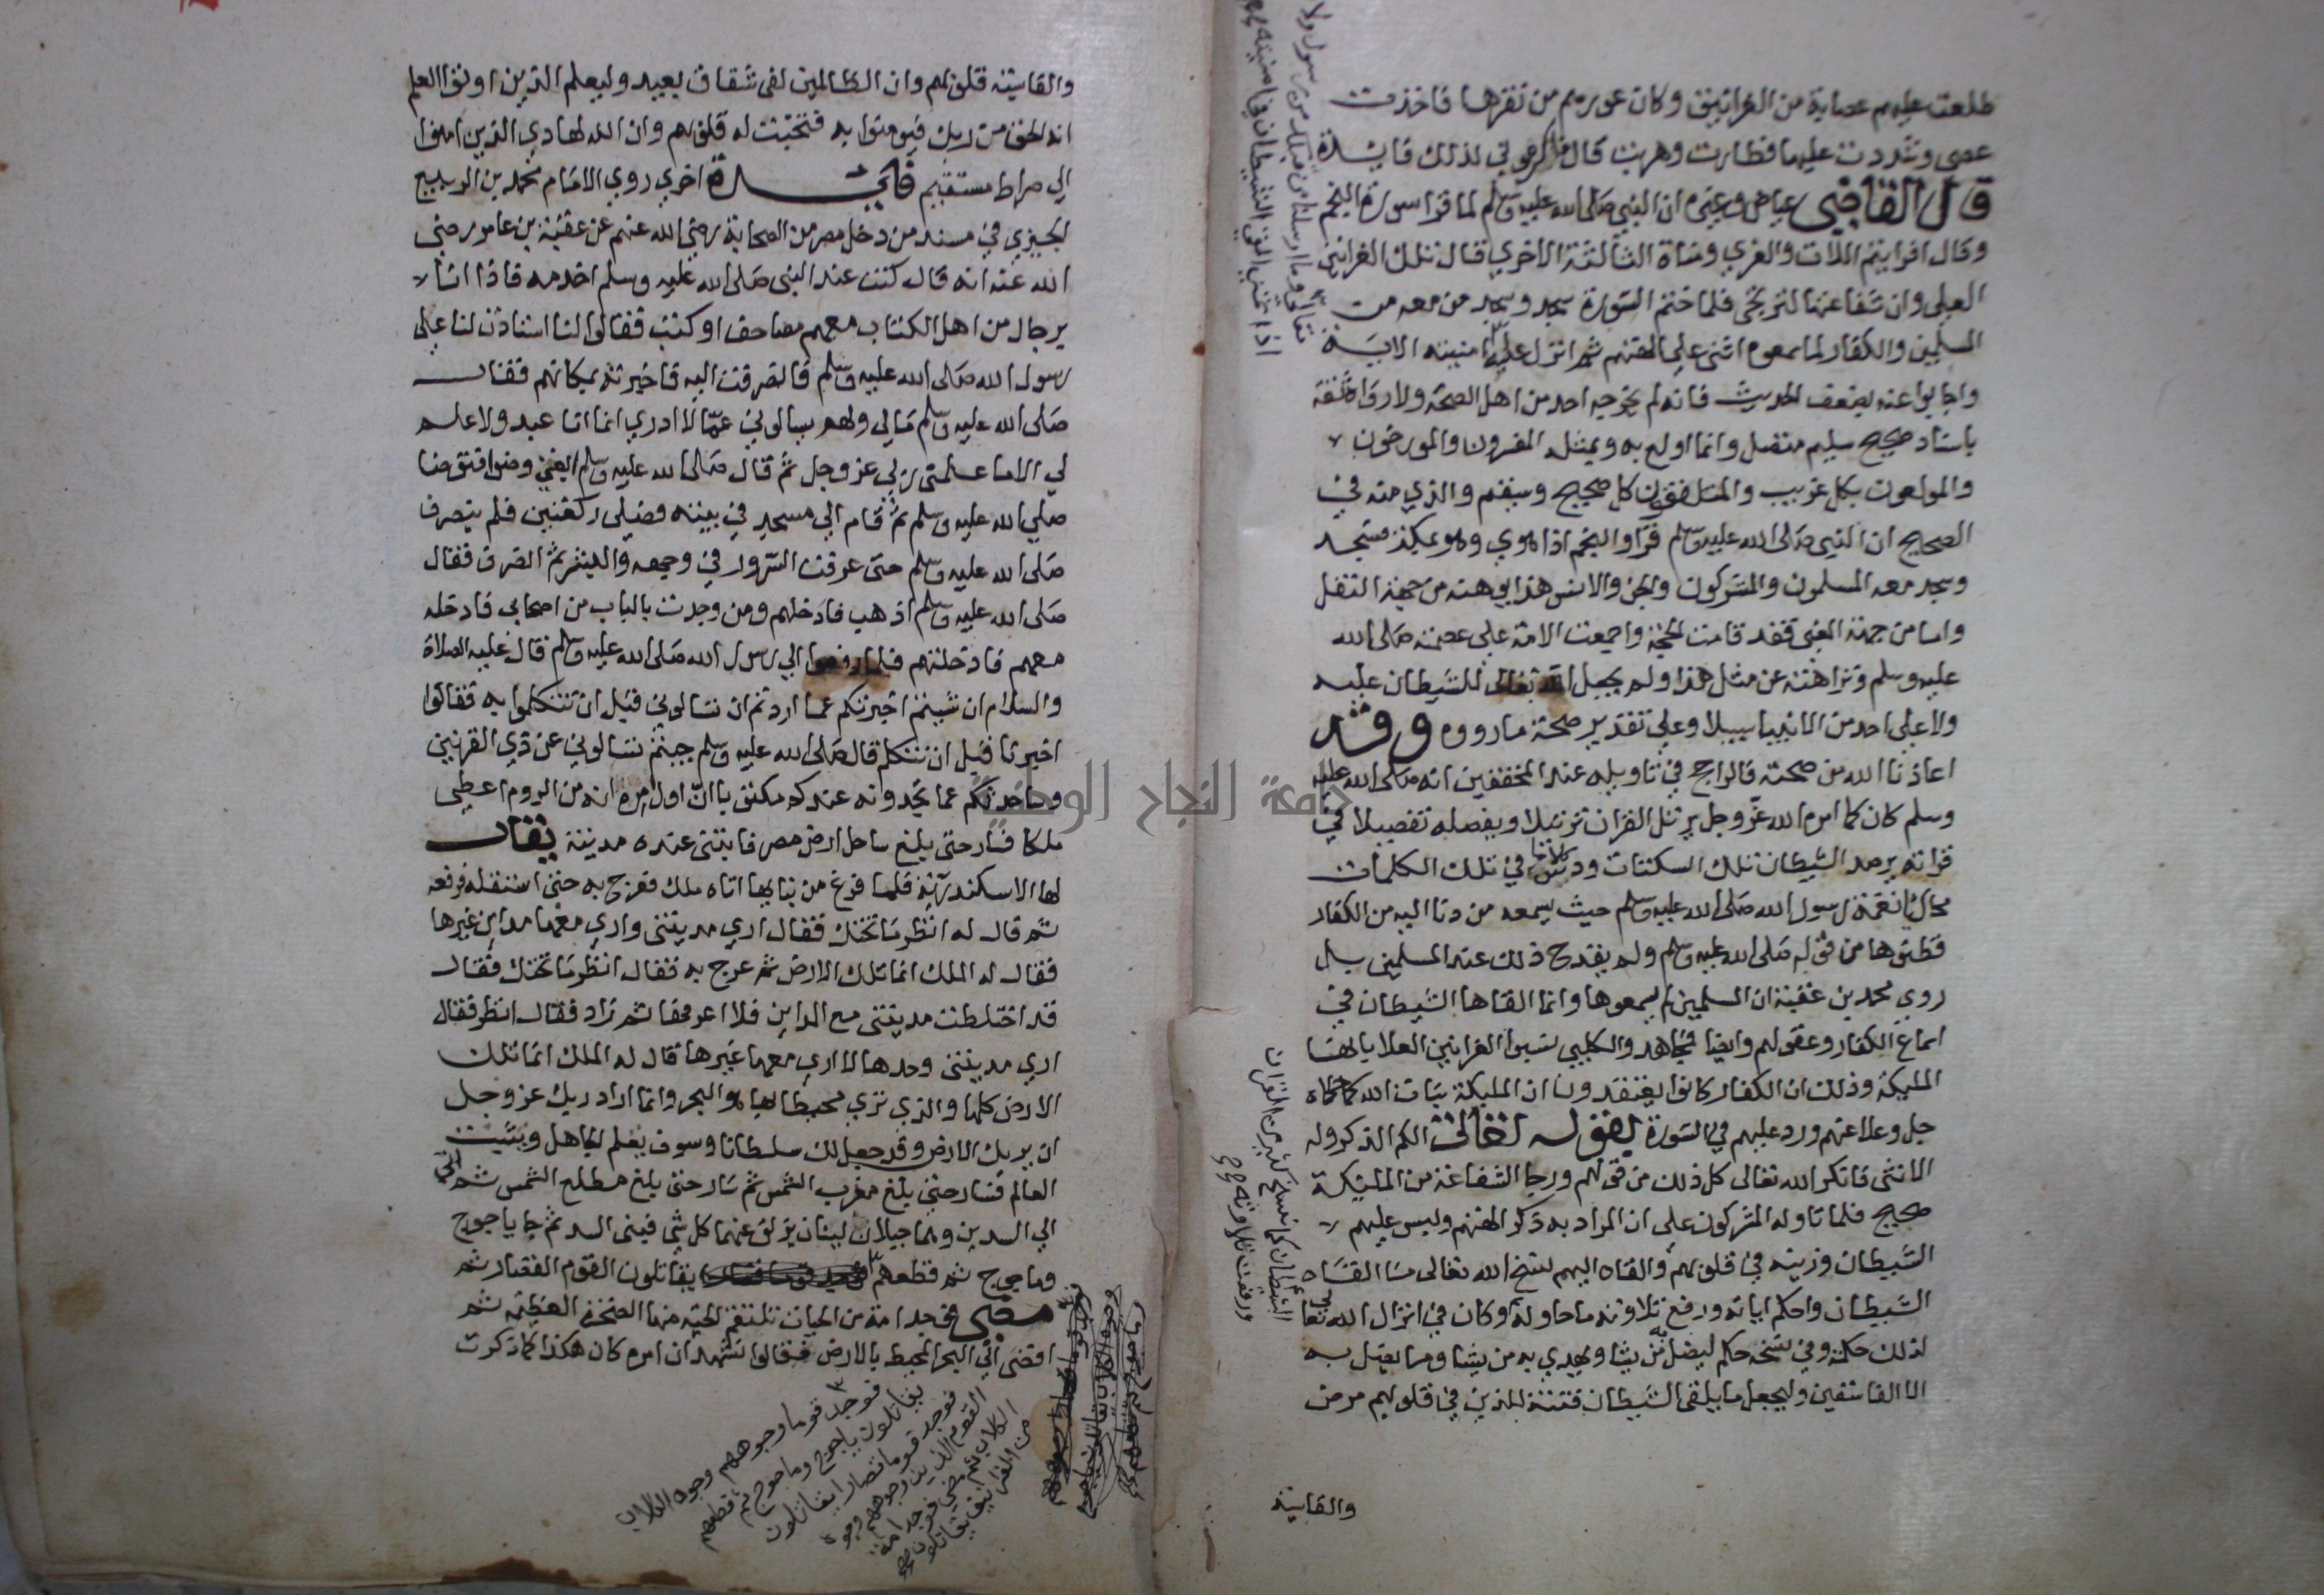 طلعت عليهم عصابة من الغرانيق وكان عورهم من نقرها فاخذت
عصى وشددت عليها فطارت وهربت قال فاكرموني لذلك فايدة
قال القاضي عياض وغيره ان النبي صلى الله عليه وسلم لما قرا سورة النجم
وقال افرايتم اللات والعزي ومناة الثالثة الاخري قال تلك الغرانيق
العلى وان شفاعتها لترتجى فلما ختم السورة سجد وسجد من معه من
المسلمين والكفار لما سمعوه اثنى على الهتهم ثم انزل عليه امنيته الاية
واجابوا عنه بضعف الحديث فانه لم يخرجه احد من اهل الصحة ولا رواه ثقة
باسناد صحيح سليم متصل وانما اولع به وبمثله المفسرون والمورخون
والمولعون بكل غريب والمتلقفون كل صحيح وسقيم والذي منه في
الصحيح ان النبي صلى الله عليه وسلم قرا والنجم اذا هوي وهو بمكة فسجد
وسجد معه المسلمون والمشركون والجن والانس هذا توهينه من جهة النقل
واما من جهة المعنى فقد قامت الحجة واجمعت الامة على عصمته صلى الله
عليه وسلم ونزاهته عن مثل هذا ولم يجعل الله تعالى للشيطان عليه
ولا على احد من الانبيا سبيلا وعلى تقدير صحة ما رووه وقد
اعاذنا الله من صحته فالراجح في تاويله عند المحققين انه صلى الله عليه
وسلم كان كما امره الله عز وجل يرتل القران ترتيلا ويفصله تفصيلا في
قراته يرصد الشيطان تلك السكتات ودس في تلك الكلمات
محاكيا نغمة رسول الله صلى الله عليه وسلم حيث يسمعه من دنا اليه من الكفار
فظنوها من قوله صلى الله عليه وسلم ولم يقدح ذلك عند المسلمين بل
روي محمد بن عقبة ان المسلمين لم يسمعوها وانما القاها الشيطان في
اسماع الكفار وعقولهم وايضا فمجاهد والكلبي فسروا الغرانيق العلا بانها
المليكة وذلك ان الكفار كانوا يعتقدون ان المليكة بنات الله كما حكاه
جل وعلا عنهم ورد عليهم في السورة بقوله تعالى الكم الذكر وله
الانثى فانكر الله تعالى كل ذلك من قولهم ورجا الشفاعة من المليكة
صحيح فلما تاوله المشركون على ان المراد به ذكر الهتهم ولبس عليهم
الشيطان وزينه في قلوبهم والقاه اليهم نسخ الله تعالى ما القاه
الشيطان واحكم اياته ورفع تلاوته ما حاوله وكان في انزال الله تعا
لذلك حكمة وفي نسخه حكم ليضل به من يشا ويهدي به من يشا وما يضل به
الا الفاسقين وليجعل ما يلقى الشيطان فتنة للذين في قلوبهم مرض
والقاسية
تعالى وما ارسلنا من قبلك من رسول ولا
اذا تمنى القى الشيطان في امنيته
الشيطان كما نسخ كثير من القران
ورفعت تلاوته
والقاسية قلوبهم وان الظالمين لفي شقاق بعيد وليعلم الذين اوتوا العلم
انه الحق من ربك فيومنوا به فتخبت له قلوبهم وان الله لهادي الذين امنوا
الي صراط مستقيم فايدة اخري روي الامام محمد بن الربيع
الجيزي في مسند من دخل مصر من الصحابة رضي الله عنهم عن عقبة بن عامر رضي
الله عنه انه قال كنت عند النبي صلى الله عليه وسلم اخدمه فاذا انا
برجال من اهل الكتاب معهم مصاحف او كتب فقالوا لنا استاذن لنا على
رسول الله صلى الله عليه وسلم فانصرفت اليه فاخبرته بمكانهم فقال
صلى الله عليه وسلم مالي ولهم يسالوني عما لا ادري انما انا عبد ولا علم
لي الا ما علمني ربي عز وجل ثم قال صلى الله عليه وسلم ابغني وضوا فتوضا
صلى الله عليه وسلم ثم قام الي مسجد في بيته فصلى ركعتين فلم ينصرف
صلى الله عليه وسلم حتى عرفت السرور في وجهه والبشر ثم انصرف فقال
صلى الله عليه وسلم اذهب فادخلهم ومن وجدت بالباب من اصحابي فادخله
معهم فادخلتهم فلما دفعوا الي رسول الله صلى الله عليه وسلم قال عليه الصلاة
والسلام ان شيتم اخبرتكم عما اردتم ان تسالوني قبل ان تتكلموا به فقالوا
اخبرنا قبل ان نتكلم قال صلى الله عليه وسلم جيتم تسالوني عن ذي القرنين
وساحدثكم عما تجدونه عندكم مكتوبا ان اول امره انه من الروم اعطى
ملكا فسار حتى بلغ ساحل ارض مصر فابتنى عنده مدينة يقال
لها الاسكندرية فلما فرغ من بنايها اتاه ملك فعرج به حتى استقله فرفعه
ثم قال له انظر ما تحتك فقال اري مدينتي واري معها مداين غيرها
فقال له الملك انما تلك الارض ثم عرج به فقال انظر ما تحتك فقال
قد اختلطت مدينتي مع المداين فلا اعرفها ثم زاد فقال انظر فقال
اري مدينتي وحدها لا اري معها غيرها قال له الملك انما تلك
الارض كلها والذي تري محيطا بها هو البحر وانما اراد ربك عز وجل
ان يريك الارض وقد جعل لك سلطانا وسوف يعلم الجاهل ويثبت
العالم فسار حتى بلغ مغرب الشمس ثم سار حتى بلغ مطلع الشمس ثم اتى
الي السدين وهما جبلان لينان يزلق عنهما كل شي فبنى السد ثم جا ياجوج
وماجوج ثم قطعهم يقاتلون القوم القصار ثم
مضى فوجد امة من الحيات تلتقم الحية منها الصخرة العظيمة ثم
افضى الي البحر المحيط بالارض فقالوا نشهد ان امره كان هكذا كما ذكرت
فوجد قوما وجوههم وجوه الكلاب
يقاتلون ياجوج وماجوج ثم قطعهم
فوجد قوما قصارا يقاتلون
القوم الذين وجوههم وجوه
الكلاب ثم مضى فوجد امة
من الغرانيق يقاتلون
جامعة النجاح الوطنية